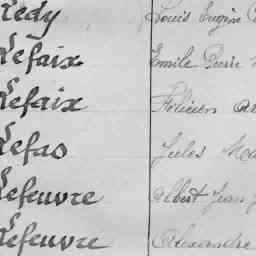 Ledy Louis Eugène
Lefaix Emile Pierre
Lefaix Félicien
Lefao Jules
Lefeuvre Albert Jean
Lefeuvre Alexandre